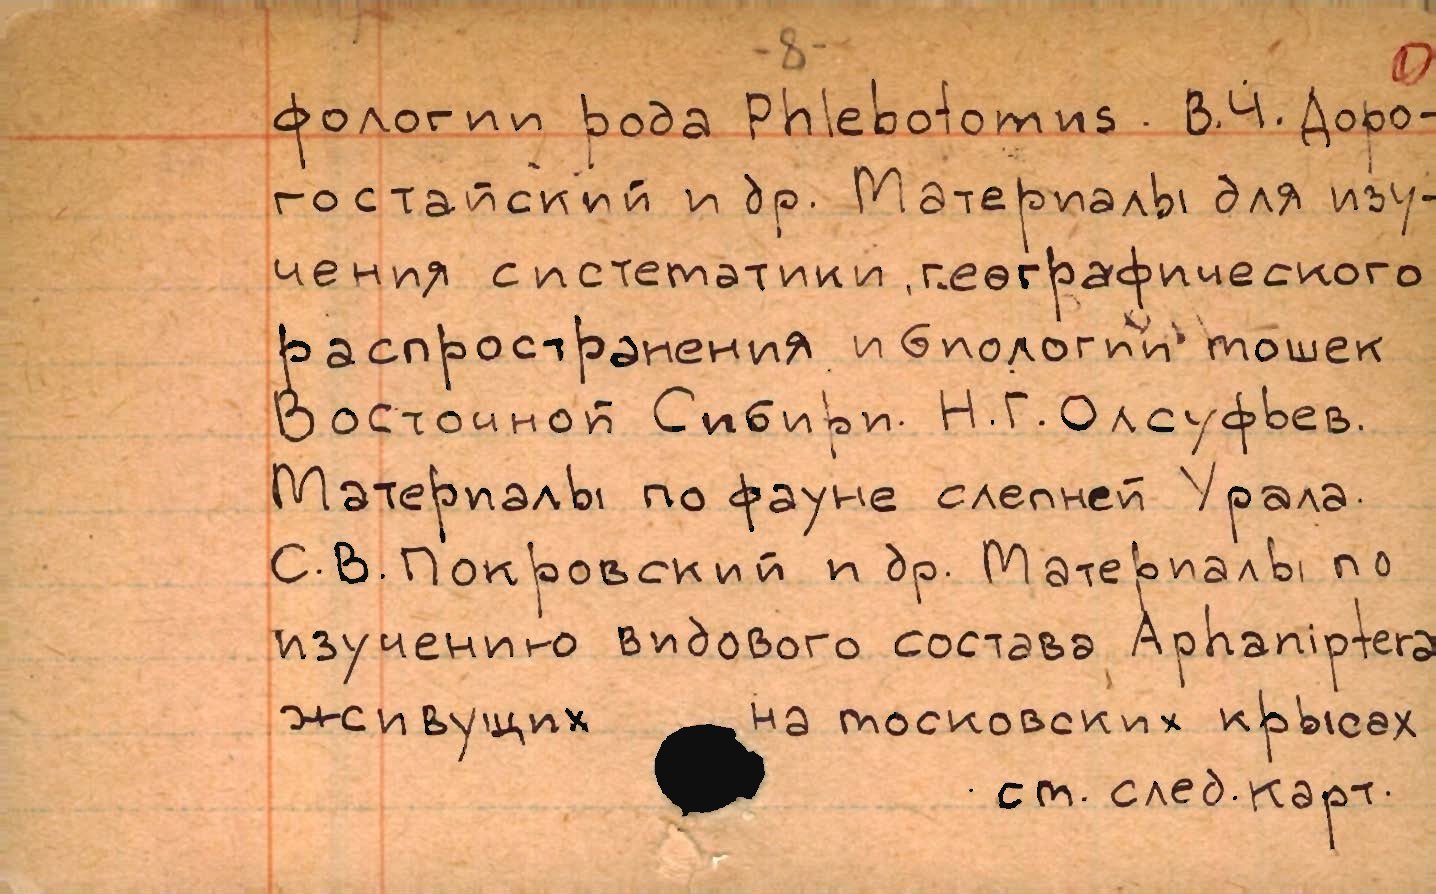 -8-
фологии рода Phlebotomus. В.Ч. Доро-
гостайский и др. Материалы для изу-
чения систематики, географического
распространения и биологий мошек
Восточной Сибири. Н.Г. Олсуфьев.
Материалы по фауне слепней Урала.
С.В. Покровский и др. Материалы по
изучению видового состава Aphaniptera
живущих на московских крысах
см. след. карт.